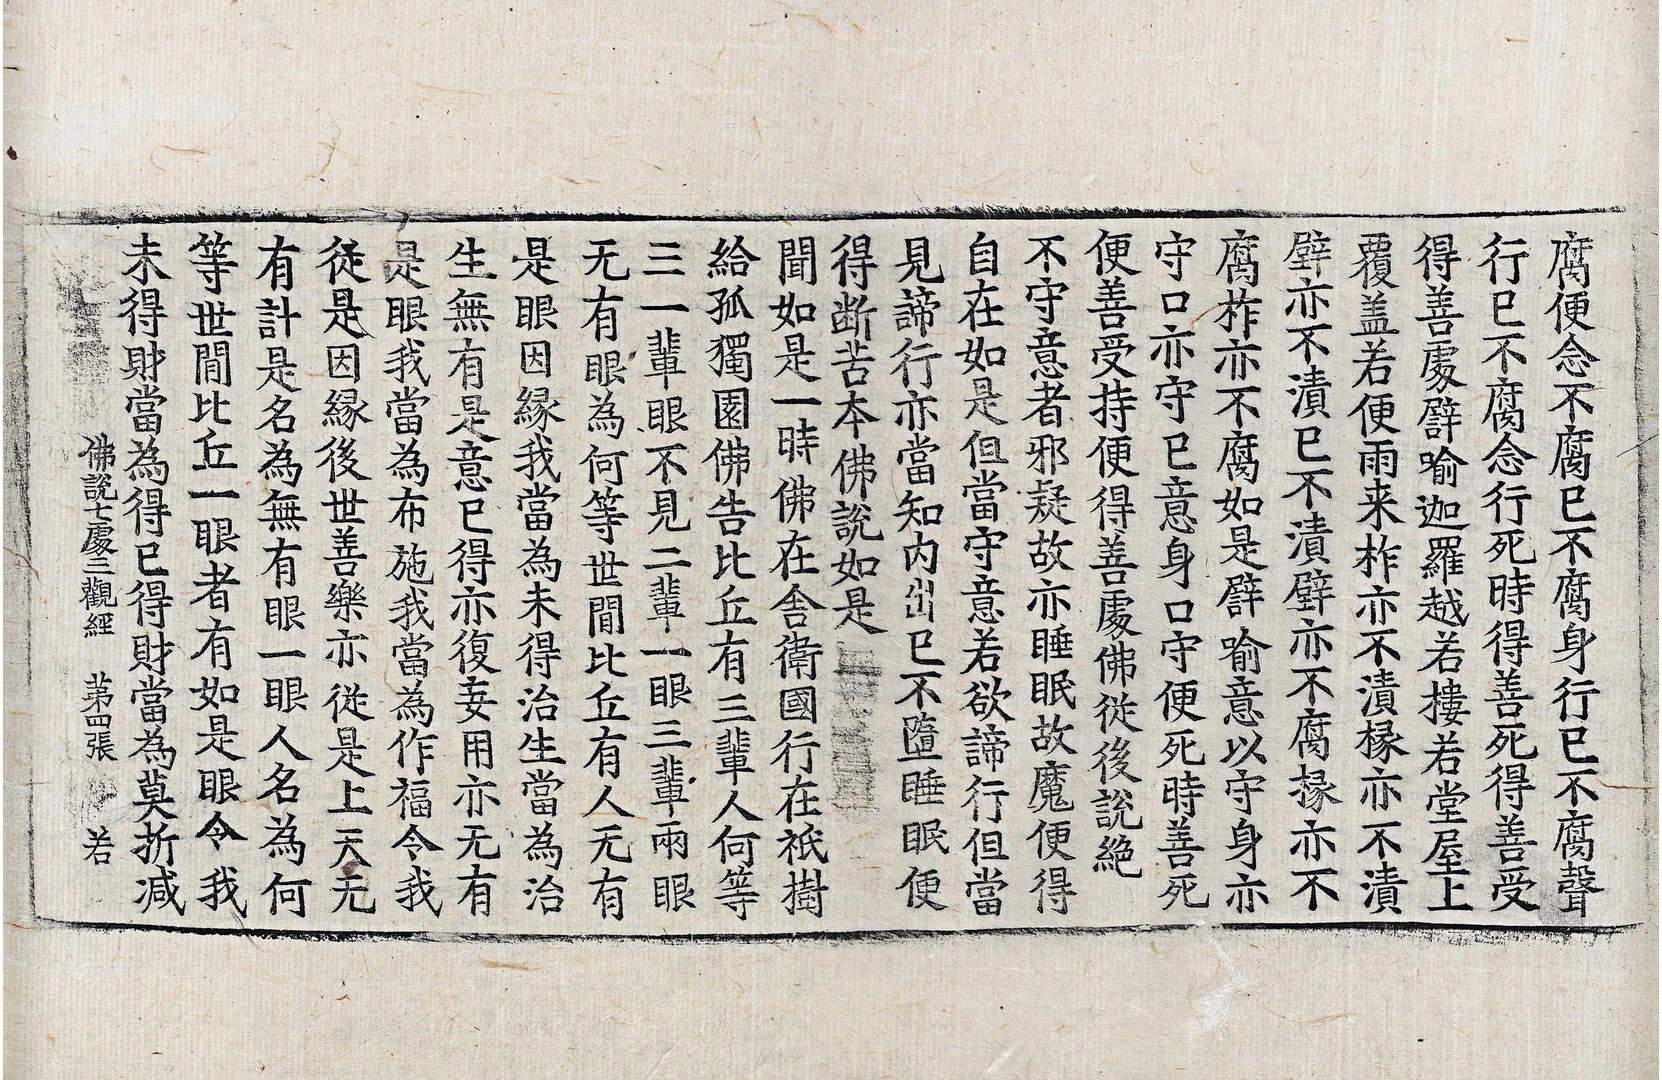 腐便念不腐已不腐身行已不腐聲
行已不腐念行死時得善死得善受
得善處譬喻迦羅越若樓若堂屋上
覆盖若便雨来柞亦不漬椽亦不漬
壁亦不漬已不漬壁亦不腐椽亦不
腐柞亦不腐如是譬喻意以守身亦
守口亦守已意身口守便死時善死
便善受持便得善處佛從後說絶
不守意者邪疑故亦睡眠故魔便得
自在如是但當守意若欲諦行但當
見諦行亦當知内出已不墮睡眠便
得断苦本佛說如是
聞如是一時佛在舍衛國行在祇樹
給孤獨園佛告比丘有三輩人何等
三一輩眼不見二輩一眼三輩兩眼
无有眼為何等世間比丘有人无有
是眼因緣我當為未得治生當為治
生無有是意已得亦復妄用亦无有
是眼我當為布施我當為作福令我
從是因緣後世善樂亦從是上天无
有計是名為無有眼一眼人名為何
等世間比丘一眼者有如是眼令我
未得財當為得已得財當為莫折减
佛說七處三觀經　第四張　若